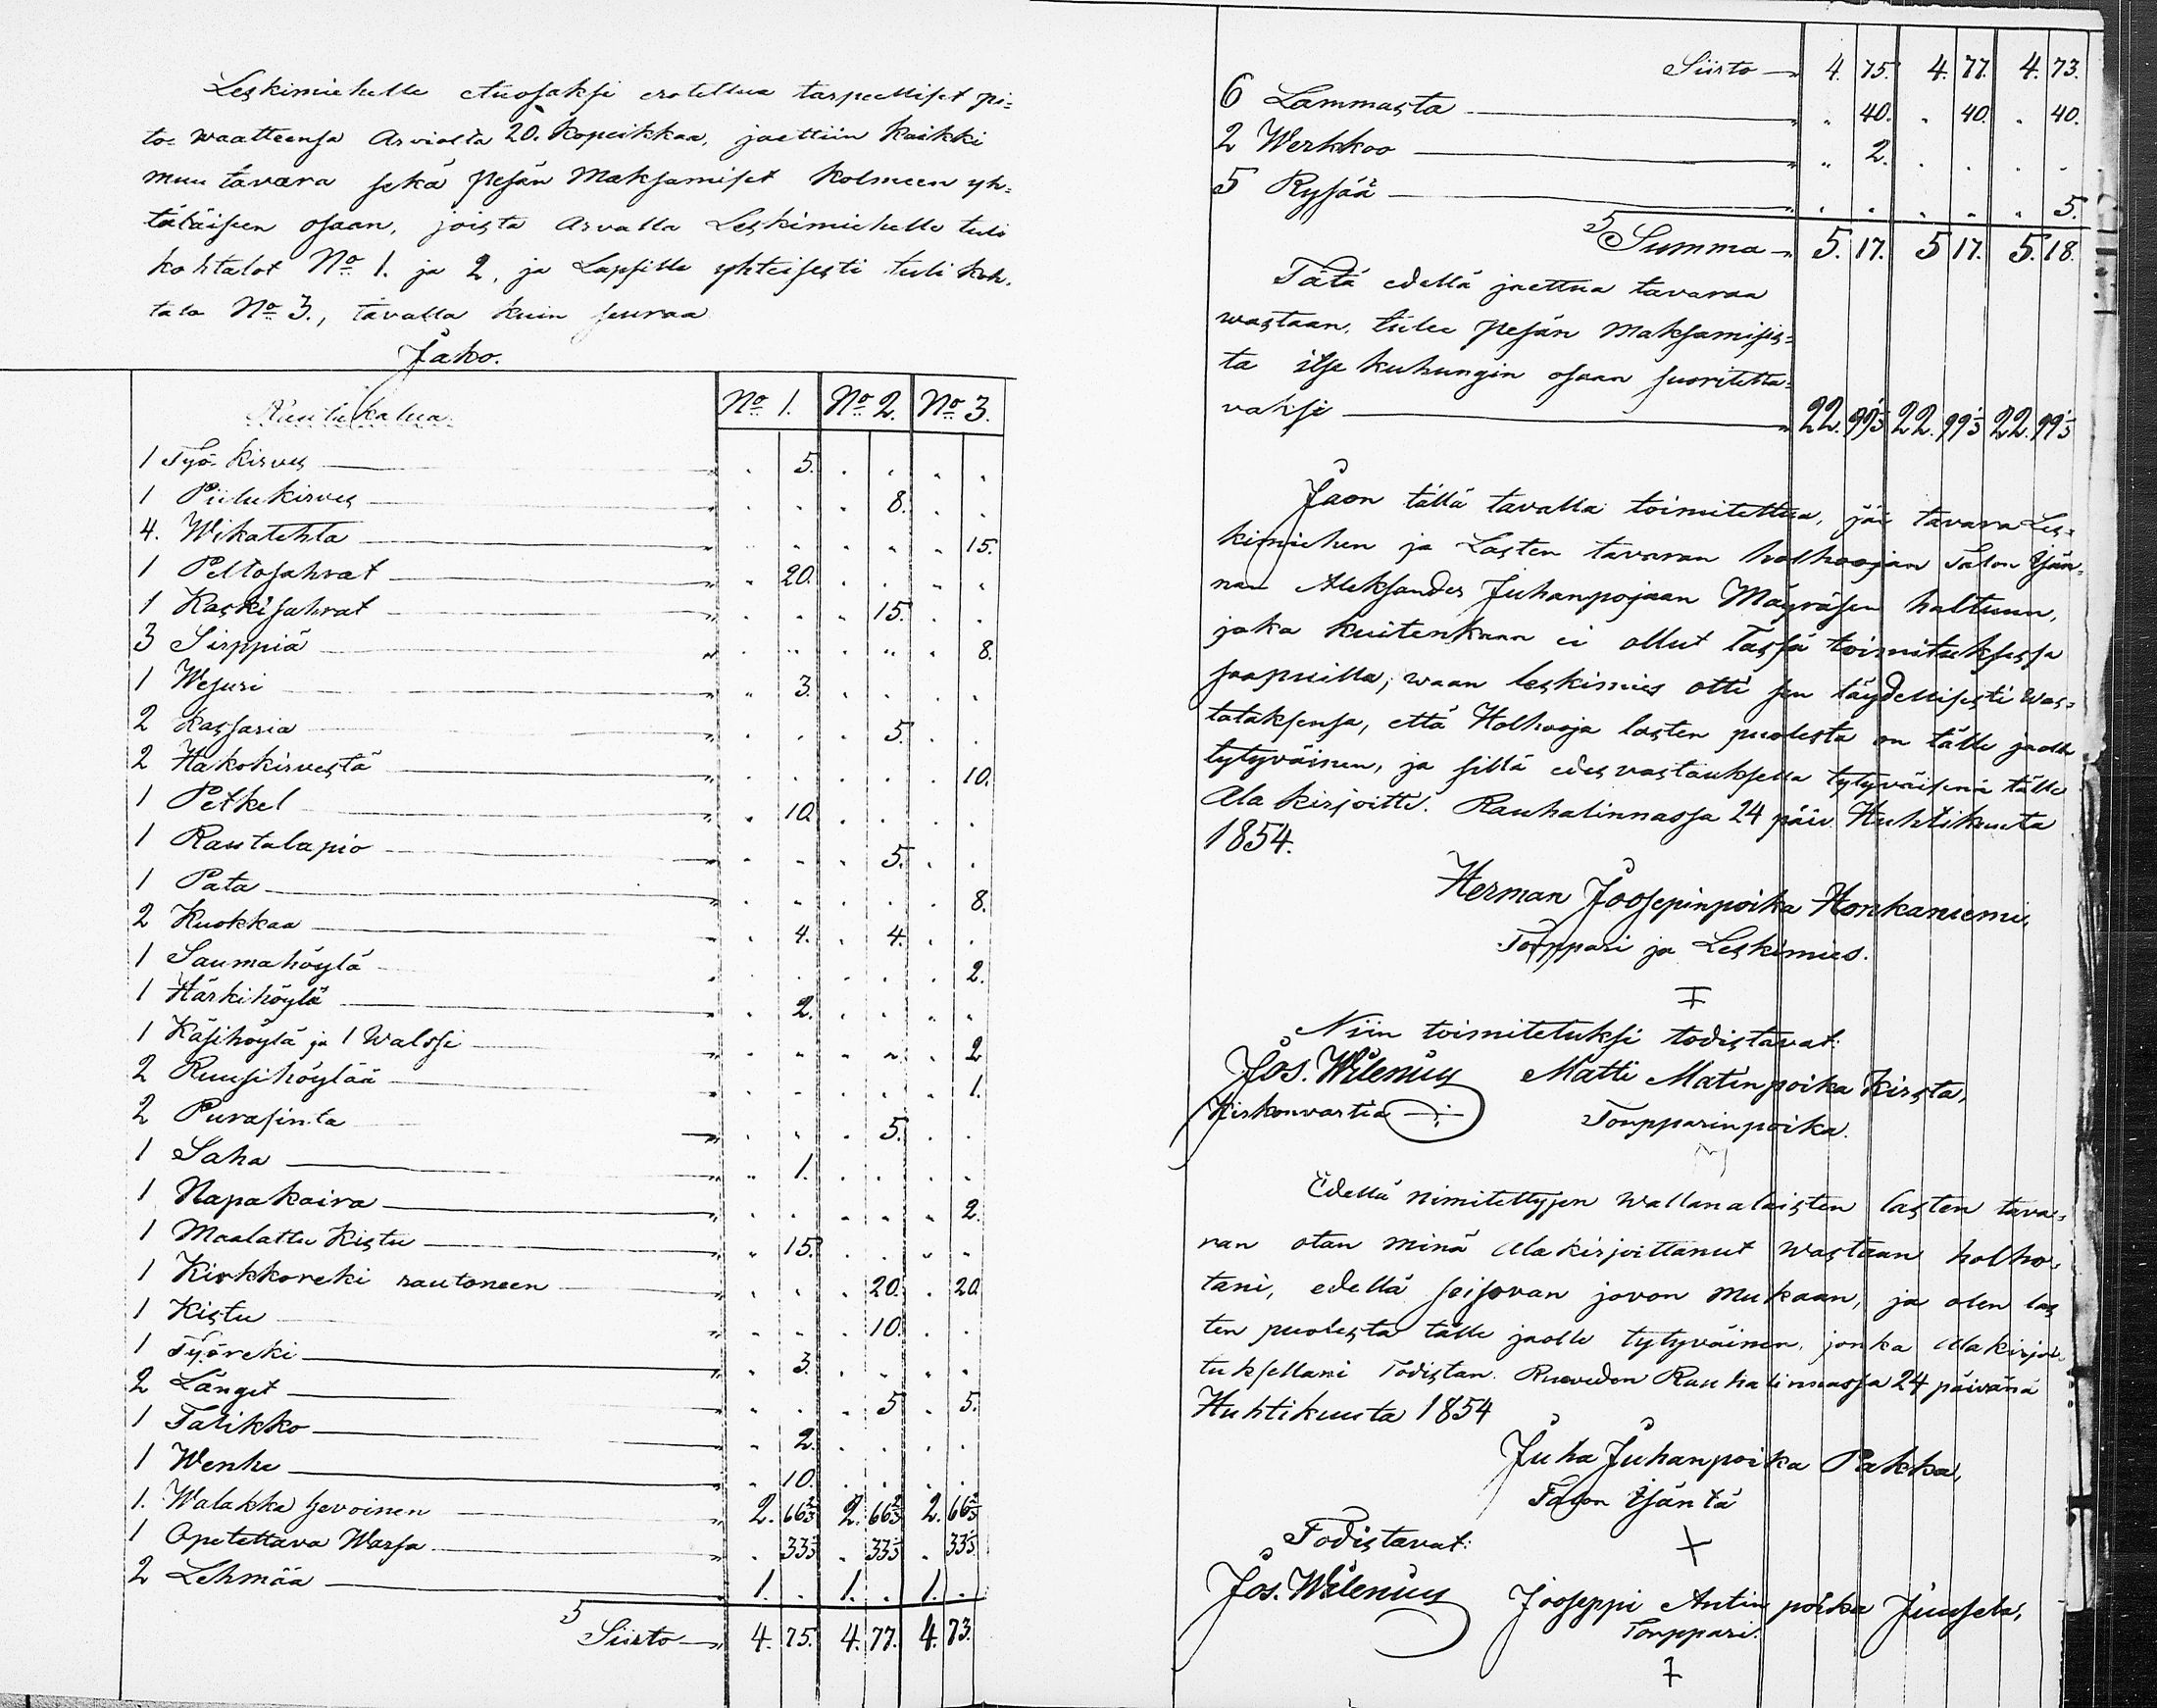 Leskimiehelle etuosaksi eroteltua tarpeelliset pi=
to= waatteensa Arviolta 20. Kopeikkaa, jaettiin kaikki
muu tavara sekä pesän Maksamiset Kolmeen yh=
täläiseen osaan, joista Arvalla Leskimiehelle tuli
kohtalot No 1. ja 2, ja Lapsille yhteisesti tuli koh.
talo No 3., tavalla kuin seuraa
Jako.
No 1. No 2. No 3.
1 Työ- kirves — 5.
1 Piilukirves — 8.
4. Wikatehta — 15.
1 Peltosahrat — 20.
1 Kaskisahrat — 15.
3 Sirppiä — 8.
1 Wesuri — 3.
2 Kassaria — 5.
2 Hakokirvestä — 10.
1 Petkel — 10.
1 Rautalapio — 5.
1 Pata — 8.
2 Kuokkaa — 4. 4.
1 Saumahöylä — 2.
1 Härkihöylä — 2.
1 Käsihöylä ja 1 Walssi — 2
2 Ruusihöylää — 1.
2 Purasinta — 5.
1 Saha — 1.
1 Napakaira — 2.
1 Maalattu Kistu — 15.
1 Kirkkoreki rautoneen — 20. 20
1 Kistu — 10.
1 Työreki — 3.
2 Länget — 5 5.
1 Tarikko — 2.
1 Wenhe — 10.
1. Walakka hevoinen — 2. 66⅔ 2. 66⅔ 2. 66⅔
1 Opetettava Warsa — 33⅓ 33⅓ 33⅓
2 Lehmää — 1. 1. 1.
Siirto — 4. 75. 4. 77. 4. 73.
Siirto — 4. 75. 4. 77. 4. 73.
6 Lammasta — 40. 40. 40.
2 Werkkoo — 2.
5 Rysää — 5.
Summa — 5. 17. 5 17. 5. 18.
Tätä edellä jaettua tavaraa
wastaan, tulee pesän Maksamisis=
ta itse kuhungin osaan suoritetta=
vaksi — 22. 99⅓ 22. 99⅓ 22. 99⅓
Jaon tällä tavalla toimitettua, jäi tavara Les=
kimiehen ja Lasten tavaran holhoojan Talon Isän=
nän Aleksander Juhanpojaan Mäyräsen haltuun,
joka kuitenkaan ei ollut Tässä toimituksessa
saapuilla, waan leskimies otti sen täydellisesti was=
tataksensa, että Holhooja lasten puolesta on tälle jaolle
tytyväinen, ja sillä edesvastauksella tytyväisenä tälle
Ala kirjoitti. Rauhalinnassa 24 päiv. Huhtikuuta
1854.
Herman Joosepinpoika Honkaniemi,
Torppari ja Leskimies.
Niin toimitetuksi todistavat:
Jos. Wilenius Matti Matinpoika Kirsta,
Kirkonvartia Torpparinpoika.
Edellä nimitettyjen wallanalaisten lasten tava=
ran otan minä Alakirjoittanut wastaan holho=
tani, edellä seisovan jaon mukaan, ja olen las
ten puolesta tälle jaolle tytyväinen, jonka Alakirjoi=
tuksellani Todistan. Ruoveden Rauhalinnassa 24 päivänä
Huhtikuuta 1854
Juha Juhanpoika Pakka,
Talon Isäntä
Todistavat:
Jos. Wilenius Jooseppi Antinpoika Juusela,
Torppari.